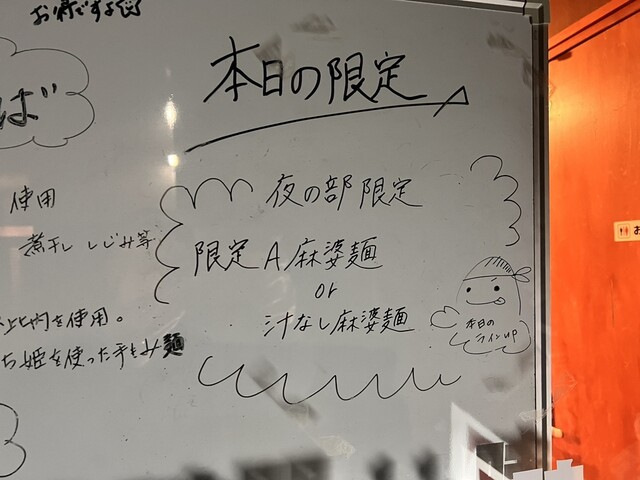 お得ですよ
ば
使用
煮干し しじみ等
比内を使用。
ち姫を使った手もみ麺
本日の限定
夜の部限定
限定 A 麻婆麺
or
汁なし麻婆麺
本日の
ラインUP
お